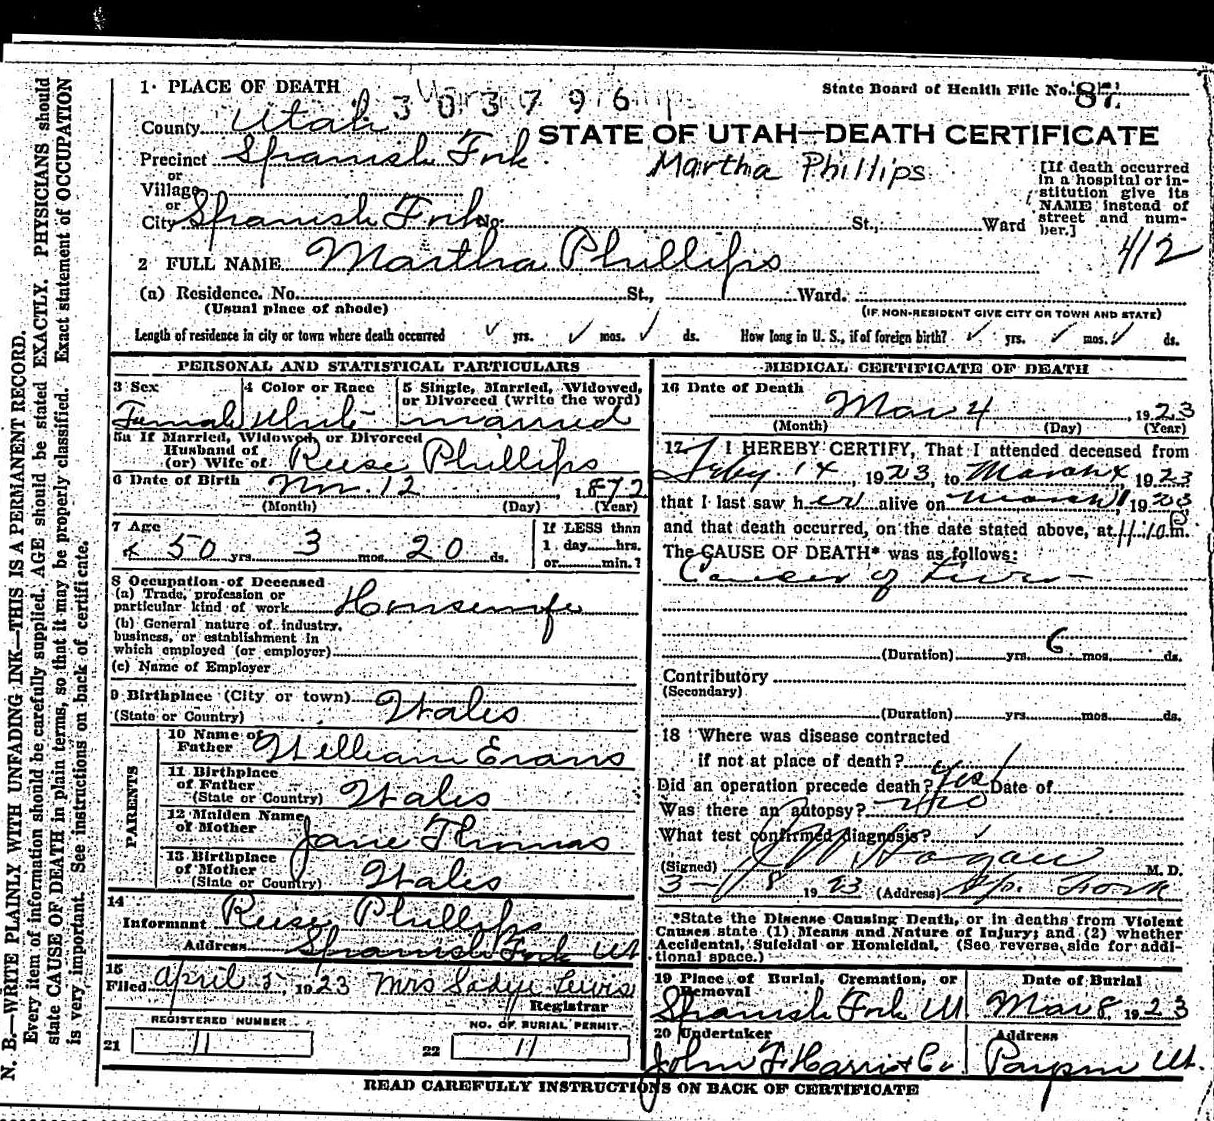 1. PLACE OF DEATH
303796
State Board of Health File No. 87
County Utah
STATE OF UTAH—DEATH CERTIFICATE
Precinct Spanish Fork
Martha Phillips
or
Village
or
City Spanish Fork No. St., Ward
[If death occurred
in a hospital or in-
stitution give its
NAME instead of
street and num-
ber.]
412
2 FULL NAME Martha Phillips
(a) Residence. No. St., Ward.
(Usual place of abode)
(IF NON-RESIDENT GIVE CITY OR TOWN AND STATE)
Length of residence in city or town where death occurred ✓ yrs. ✓ mos. ✓ ds. How long in U. S., if of foreign birth? ✓ yrs. ✓ mos. ✓ ds.
PERSONAL AND STATISTICAL PARTICULARS
3 Sex
Female
4 Color or Race
White
5 Single, Married, Widowed,
or Divorced (write the word)
married
5a If Married, Widowed, or Divorced
Husband of
(or) Wife of Reese Phillips
6 Date of Birth Nov. 12, 1872
(Month) (Day) (Year)
7 Age
50 yrs. 3 mos. 20 ds.
If LESS than
1 day......hrs.
or......min.?
8 Occupation of Deceased
(a) Trade, profession or
particular kind of work Housewife
(b) General nature of industry,
business, or establishment in
which employed (or employer)
(c) Name of Employer
9 Birthplace (City or town)
(State or Country) Wales
PARENTS
10 Name of
Father William Evans
11 Birthplace
of Father
(State or Country) Wales
12 Maiden Name
of Mother Jane Thomas
13 Birthplace
of Mother
(State or Country) Wales
14
Informant Reese Phillips
Address Spanish Fork Ut
15
Filed April 5, 1923 Mrs Sadye Lewis
Registrar
REGISTERED NUMBER
21 11
NO. OF BURIAL PERMIT.
22 11
MEDICAL CERTIFICATE OF DEATH
16 Date of Death
Mar 4 1923
(Month) (Day) (Year)
17 I HEREBY CERTIFY, That I attended deceased from
Feby. 14, 1923, to March 4 1923
that I last saw her alive on March 1, 1923
and that death occurred, on the date stated above, at 11:10 P m.
The CAUSE OF DEATH* was as follows:
Cancer of Liver
(Duration) yrs. 6 mos. ds.
Contributory
(Secondary)
(Duration) yrs. mos. ds.
18 Where was disease contracted
if not at place of death?
Did an operation precede death? Yes Date of
Was there an autopsy? No
What test confirmed diagnosis? ✓
(Signed) J W Hagan M. D.
3— 8 1923 (Address) Sp. Fork
*State the Disease Causing Death, or in deaths from Violent
Causes state (1) Means and Nature of Injury; and (2) whether
Accidental, Suicidal or Homicidal. (See reverse side for addi-
tional space.)
19 Place of Burial, Cremation, or
Removal
Spanish Fork Ut
Date of Burial
Mar 8 1923
20 Undertaker
John F. Harris & Co
Address
Payson Ut.
READ CAREFULLY INSTRUCTIONS ON BACK OF CERTIFICATE
N. B.—WRITE PLAINLY WITH UNFADING INK—THIS IS A PERMANENT RECORD.
Every item of information should be carefully supplied. AGE should be stated EXACTLY. PHYSICIANS should
state CAUSE OF DEATH in plain terms, so that it may be properly classified. Exact statement of OCCUPATION
is very important. See instructions on back of certificate.